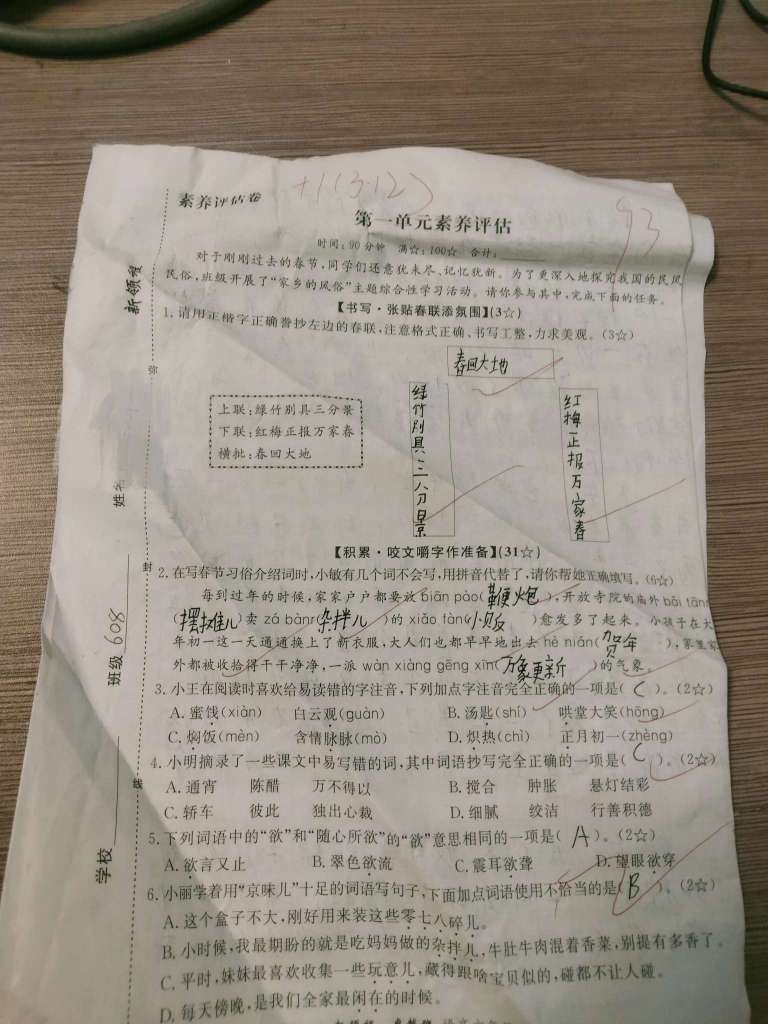 素养评估卷
+1(312)
93
第一单元素养评估
时间:90分钟 满☆:100☆ 合计:
对于刚刚过去的春节,同学们还意犹未尽、记忆犹新。为了更深入地探究我国的民风
民俗,班级开展了“家乡的风俗”主题综合性学习活动。请你参与其中,完成下面的任务。
【书写·张贴春联添氛围】(3☆)
1.请用正楷字正确誊抄左边的春联,注意格式正确、书写工整,力求美观。(3☆)
春回大地
上联:绿竹别具三分景
下联:红梅正报万家春
横批:春回大地
绿竹别具三分景
红梅正报万家春
【积累·咬文嚼字作准备】(31☆)
2.在写春节习俗介绍词时,小敏有几个词不会写,用拼音代替了,请你帮她正确填写。(6☆)
每到过年的时候,家家户户都要放 biān pào(鞭炮),开放寺院的庙外 bǎi tānr
(摆摊儿)卖 zá bànr(杂拌儿)的 xiǎo fàn(小贩)愈发多了起来。小孩子在大
年初一这一天通通换上了新衣服,大人们也都早早地出去 hè nián(贺年),家里家
外都被收拾得干干净净,一派 wàn xiàng gēng xīn(万象更新)的气象。
3.小王在阅读时喜欢给易读错的字注音,下列加点字注音完全正确的一项是(C)。(2☆)
A.蜜饯(xiàn) 白云观(guàn) B.汤匙(shí) 哄堂大笑(hōng)
C.焖饭(mèn) 含情脉脉(mò) D.炽热(chì) 正月初一(zhèng)
4.小明摘录了一些课文中易写错的词,其中词语抄写完全正确的一项是(C)。(2☆)
A.通宵 陈醋 万不得以 B.搅合 肿胀 悬灯结彩
C.轿车 彼此 独出心裁 D.细腻 绞洁 行善积德
5.下列词语中的“欲”和“随心所欲”的“欲”意思相同的一项是(A)。(2☆)
A.欲言又止 B.翠色欲流 C.震耳欲聋 D.望眼欲穿
6.小丽学着用“京味儿”十足的词语写句子,下面加点词语使用不恰当的是(B)。(2☆)
A.这个盒子不大,刚好用来装这些零七八碎儿。
B.小时候,我最期盼的就是吃妈妈做的杂拌儿,牛肚牛肉混着香菜,别提有多香了。
C.平时,妹妹最喜欢收集一些玩意儿,藏得跟啥宝贝似的,碰都不让人碰。
D.每天傍晚,是我们全家最闲在的时候。
新领程
弥
姓名
封
班级 608
线
学校